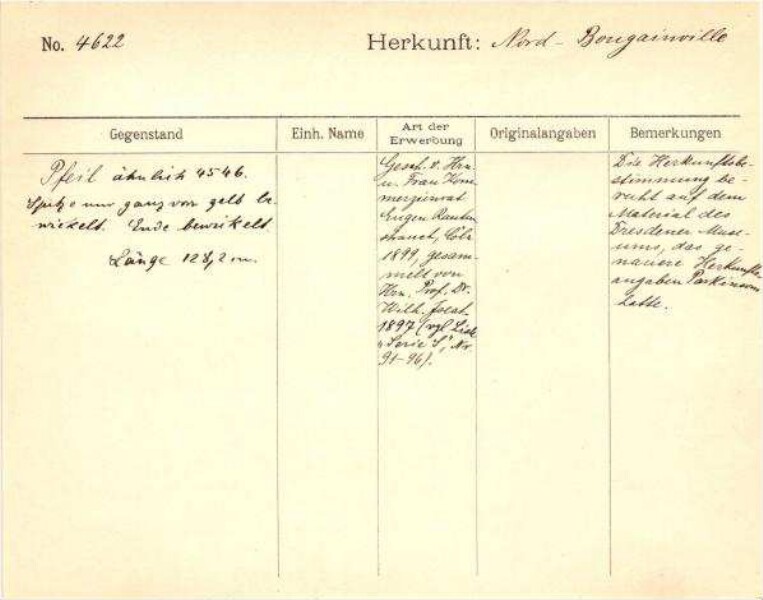 No. 4622
Herkunft: Nord-Bougainville
Gegenstand
Einh. Name
Art der Erwerbung
Originalangaben
Bemerkungen
Pfeil ähnlich 4546.
Spitze nur ganz vorn gelb be-
wickelt. Ende bewickelt.
Länge 128,2 cm.
Gesch. v. Hrn.
u. Frau Kom-
merzienrat
Eugen Rauten-
strauch, Cöln
1899, gesam-
melt von
Hrn. Prof. Dr.
Wilh. Joest
1897 (vgl. Liste
"Serie S", Nr.
91-96).
Die Herkunftsbe-
stimmung be-
ruht auf dem
Material des
Dresdener Muse-
ums, das ge-
nauere Herkunfts-
angaben Parkinsons
hatte.